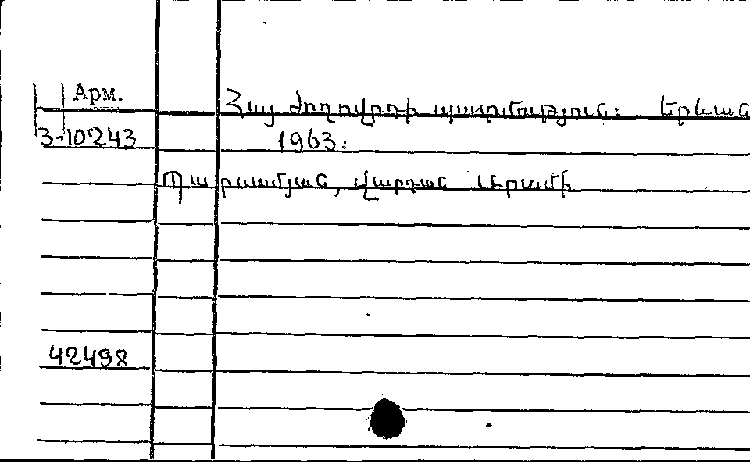 Арм.
Հայ ժողովրդի պատմություն: Երևան
3-10243
1963:
Պարսամյան, Վարդան Արամի
42498